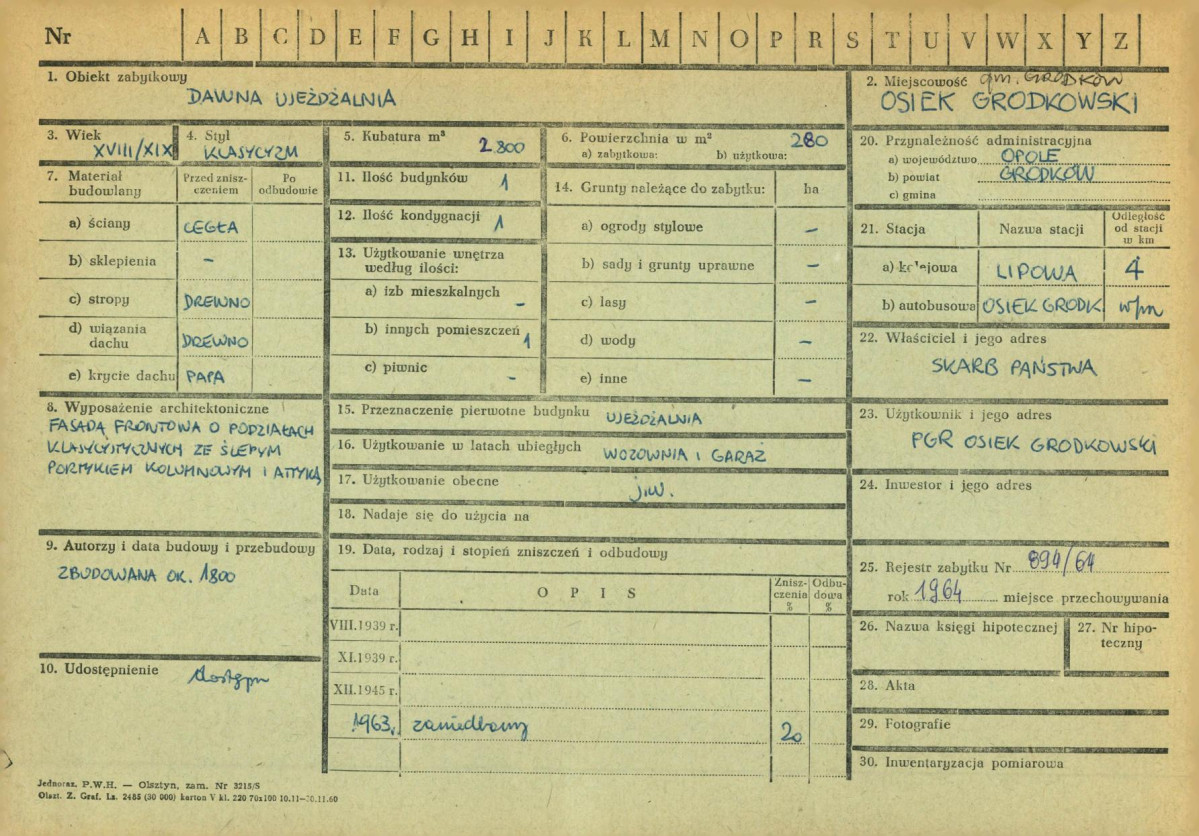 Nr A B C D E F G H I J K L M N O P R S T U V W X Y Z
1. Obiekt zabytkowy
DAWNA UJEŻDŻALNIA
2. Miejscowość gm. GRODKÓW
OSIEK GRODKOWSKI
3. Wiek
XVIII/XIX
4. Styl
KLASYCYZM
5. Kubatura m³
2.800
6. Powierzchnia w m² 280
a) zabytkowa: b) użytkowa:
7. Materiał budowlany
Przed zniszczeniem
Po odbudowie
a) ściany CEGŁA
b) sklepienia –
c) stropy DREWNO
d) wiązania dachu DREWNO
e) krycie dachu PAPA
8. Wyposażenie architektoniczne
FASADĄ FRONTOWA O PODZIAŁACH
KLASYCYSTYCZNYCH ZE ŚLEPYM
PORTYKIEM KOLUMNOWYM I ATTYKĄ
9. Autorzy i data budowy i przebudowy
ZBUDOWANA OK. 1800
10. Udostępnienie
11. Ilość budynków 1
12. Ilość kondygnacji 1
13. Użytkowanie wnętrza
według ilości:
a) izb mieszkalnych –
b) innych pomieszczeń 1
c) piwnic –
14. Grunty należące do zabytku: ha
a) ogrody stylowe –
b) sady i grunty uprawne –
c) lasy –
d) wody –
e) inne –
15. Przeznaczenie pierwotne budynku UJEŻDŻALNIA
16. Użytkowanie w latach ubiegłych WOZOWNIA I GARAŻ
17. Użytkowanie obecne
j.w.
18. Nadaje się do użycia na
19. Data, rodzaj i stopień zniszczeń i odbudowy
Data
O P I S
Zniszczenia %
Odbudowa %
VIII.1939 r.
XI.1939 r.
XII.1945 r.
1963 r. zaniedbany 20
20. Przynależność administracyjna
a) województwo OPOLE
b) powiat GRODKÓW
c) gmina
21. Stacja
Nazwa stacji
Odległość od stacji w km
a) kolejowa LIPOWA 4
b) autobusowa OSIEK GRODK w/m
22. Właściciel i jego adres
SKARB PAŃSTWA
23. Użytkownik i jego adres
PGR OSIEK GRODKOWSKI
24. Inwestor i jego adres
25. Rejestr zabytku Nr 894/64
rok 1964 miejsce przechowywania
26. Nazwa księgi hipotecznej
27. Nr hipoteczny
28. Akta
29. Fotografie
30. Inwentaryzacja pomiarowa
Jednoraz. P.W.H. — Olsztyn, zam. Nr 3215/S
Olszt. Z. Graf. Lz. 2485 (30 000) karton V kl. 220 70x100 10.11—30.11.60